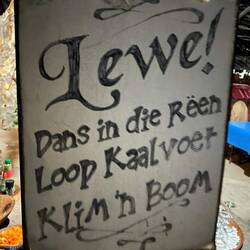 Lewe!
Dans in die Rëen
Loop Kaalvoet
Klim 'n Boom